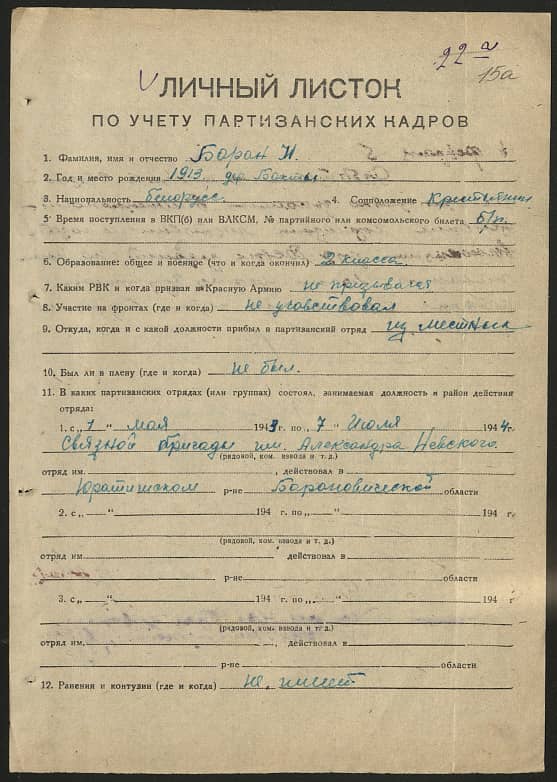 22 а
15а
ЛИЧНЫЙ ЛИСТОК
ПО УЧЕТУ ПАРТИЗАНСКИХ КАДРОВ
1. Фамилия, имя и отчество Баран И.
2. Год и место рождения 1913 дер. Бакшты
3. Национальность белорусс 4. Соцположение Крестьянин
5. Время поступления в ВКП(б) или ВЛКСМ, № партийного или комсомольского билета б/п.
6. Образование: общее и военное (что и когда окончил) 2 класса
7. Каким РВК и когда призван в Красную Армию не призывался
8. Участие на фронтах (где и когда) не участвовал
9. Откуда, когда и с какой должности прибыл в партизанский отряд из местных
10. Был ли в плену (где и когда) не был.
11. В каких партизанских отрядах (или группах) состоял, занимаемая должность и район действия
отряда:
1. с „1“ мая 1943 г. по „7“ июля 1944 г.
Связной бригады им. Александра Невского
(рядовой, ком. взвода и т. д.)
отряд им. , действовал в
Юратишском р-не Барановической области
2. с „ “ 194 г. по „ “ 194 г.
(рядовой, ком. взвода и т. д.)
отряд им. действовал в
р-не области
3. с „ “ 194 г. по „ “ 194 г.
(рядовой, ком. взвода и т. д.)
отряд им. , действовал в
р-не области
12. Ранения и контузии (где и когда) не имеет